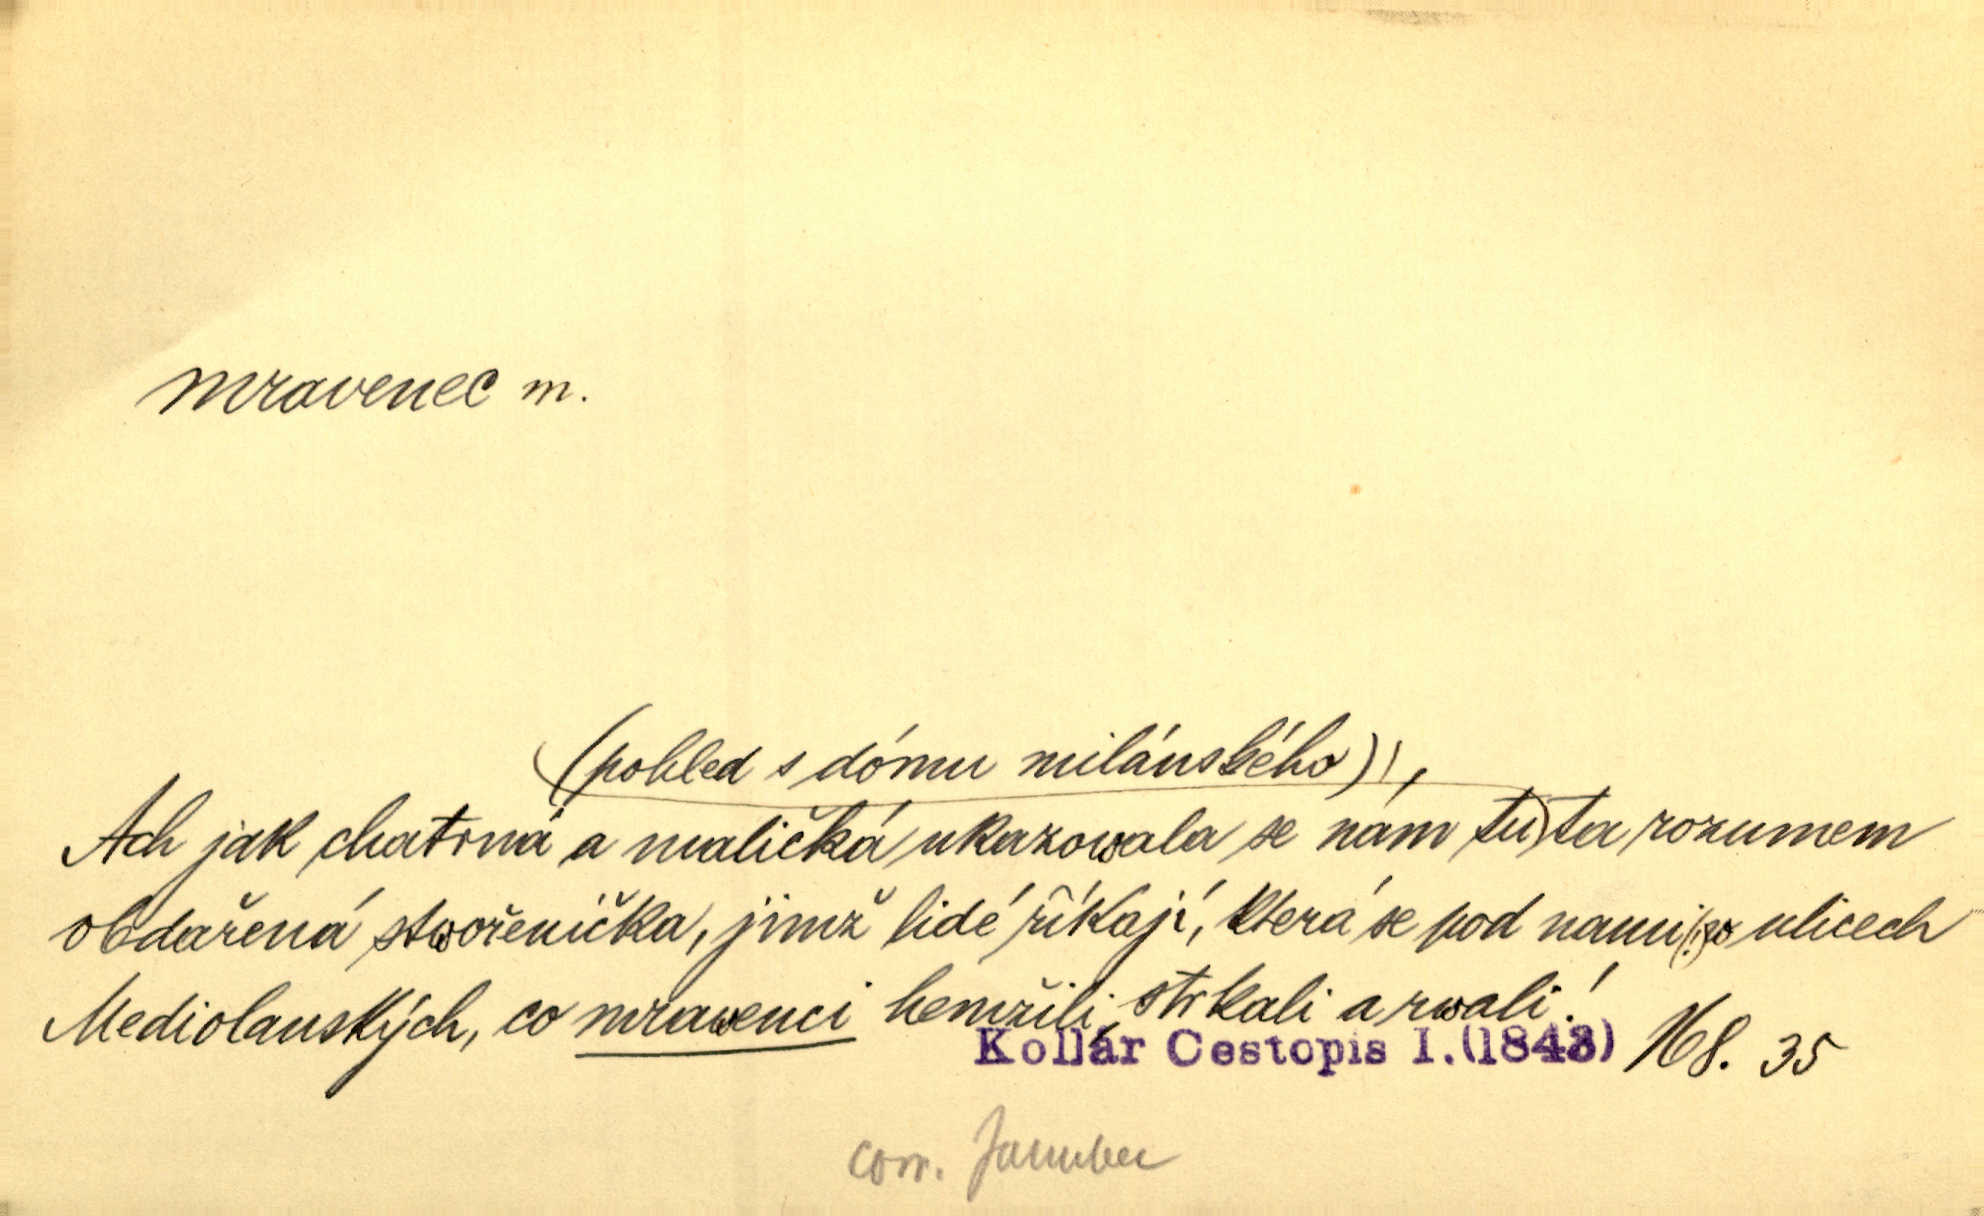 mravenec m.
(pohled s dómu milánského),
Ach jak chatrná a maličká ukazowala se nám tu) ta rozumem
obdařená stwořenička, jimž lidé říkají, která se pod nami (!) po ulicech
Mediolanských, co mrawenci hemžili, strkali a rwali!
Kollár Cestopis I. (1843) 168. 35
corr.